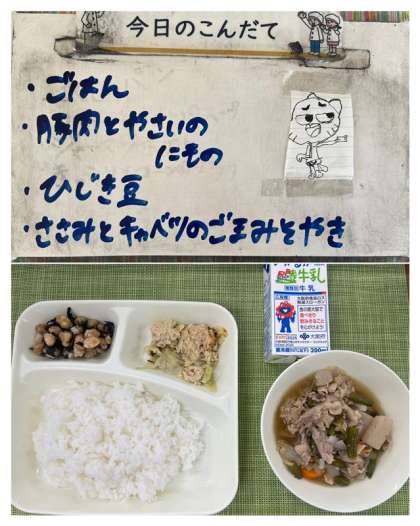 今日のこんだて
・ごはん
・豚肉とやさいの
にもの
・ひじき豆
・ささみとキャベツのごまみそやき
牛乳
種類別 牛乳
大阪府
200ml